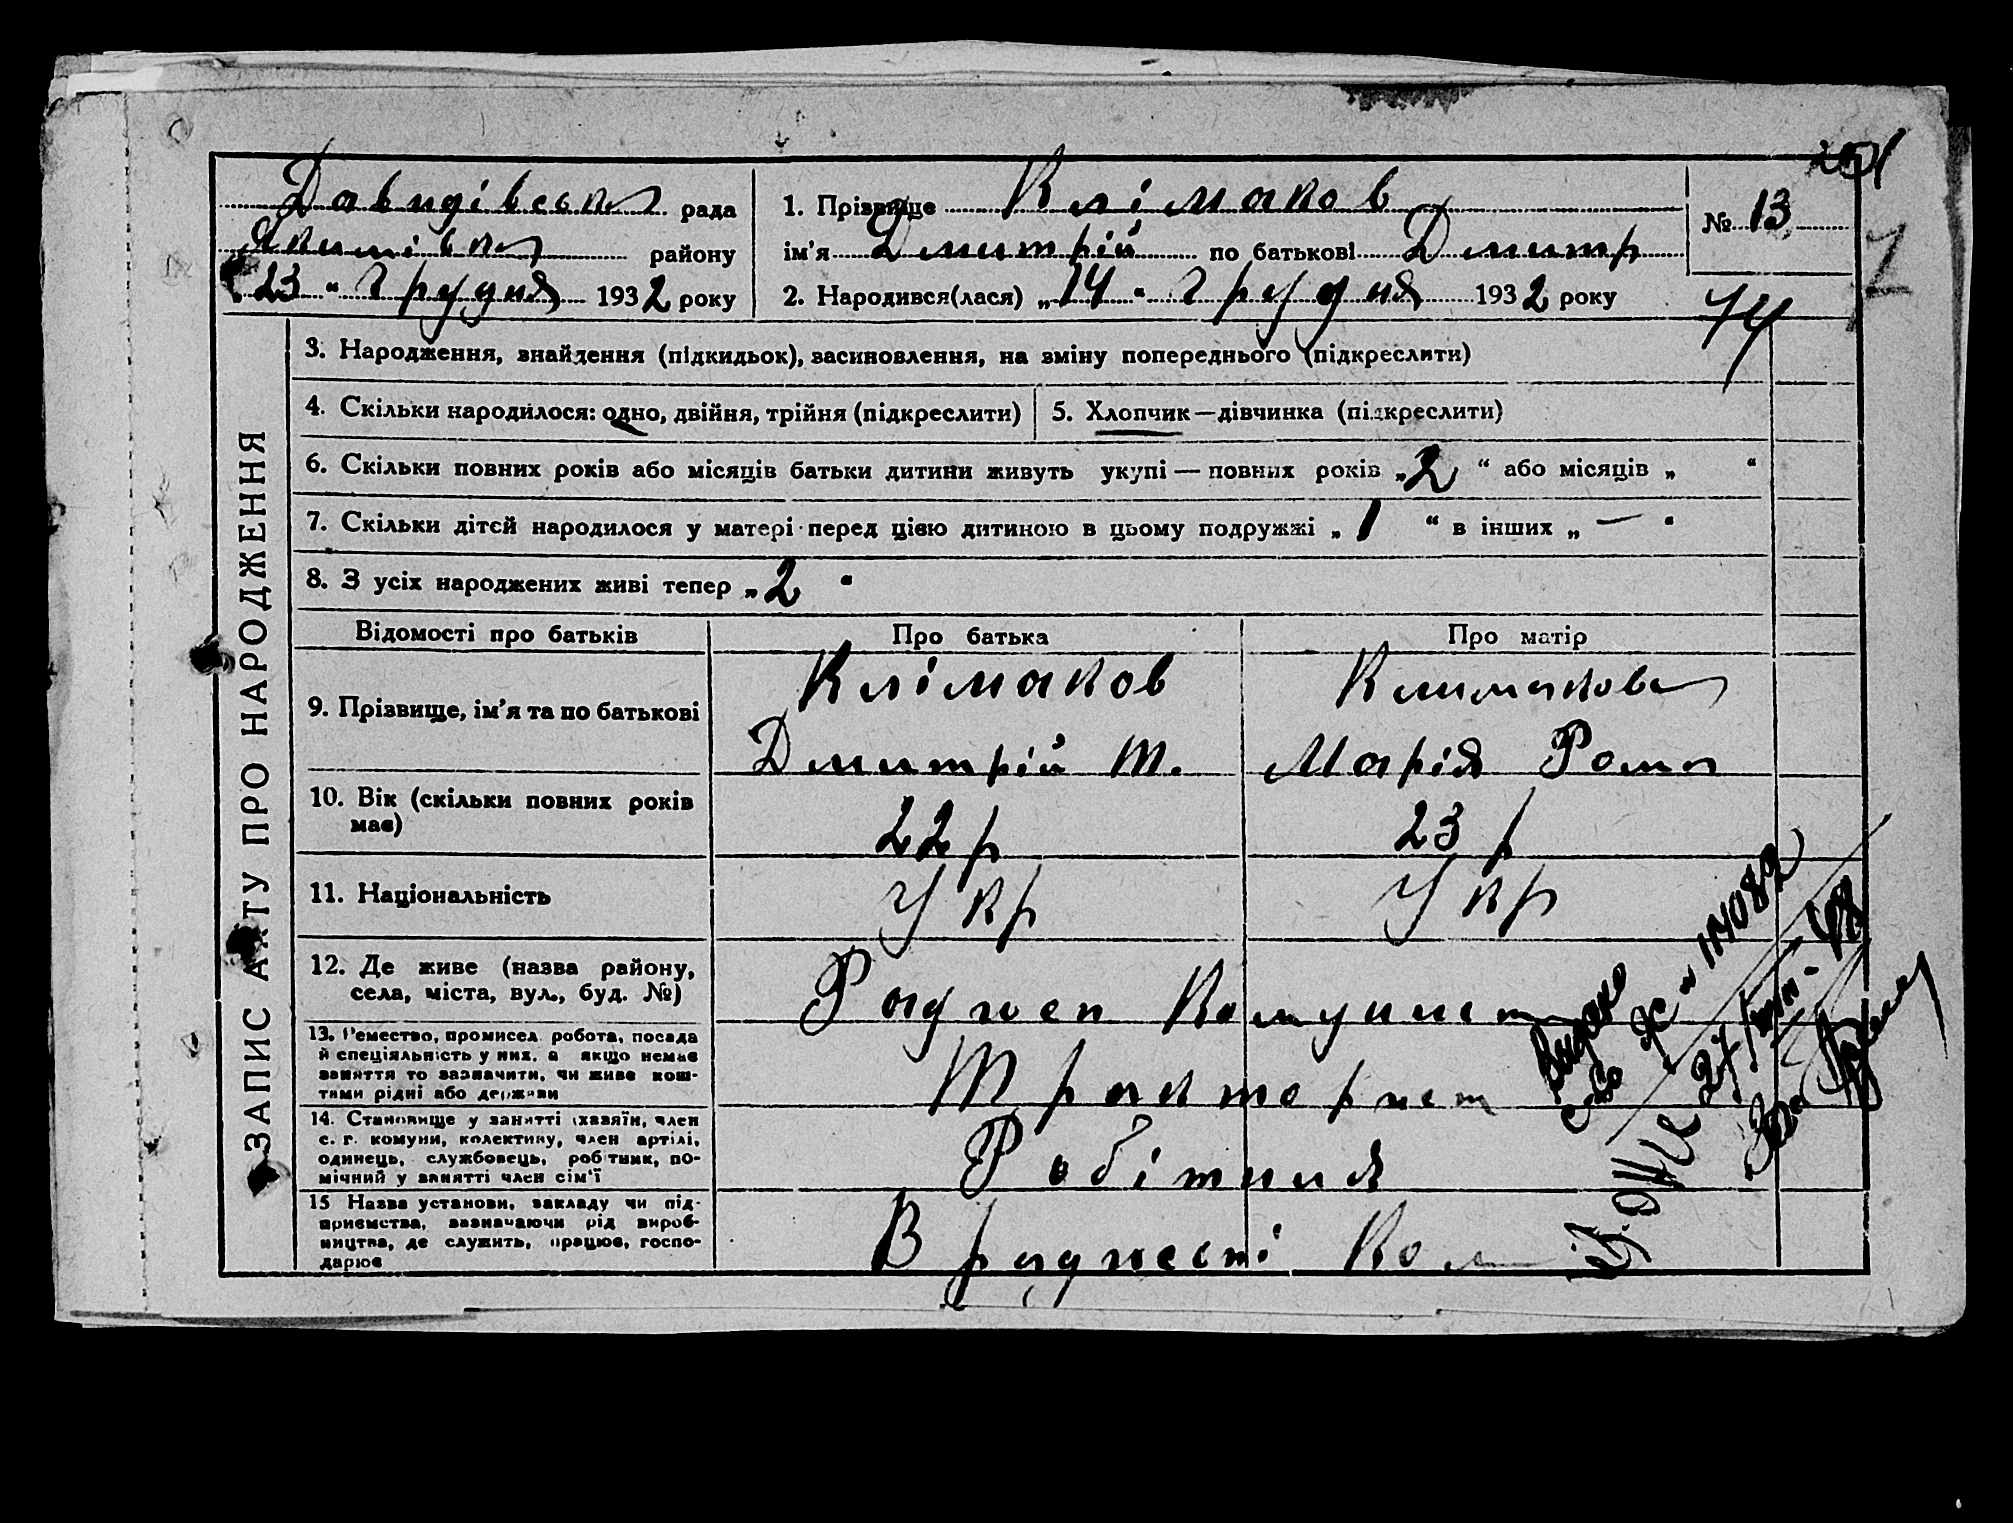 201
Давидівська рада
Якимівськ району
„23" Грудня 1932 року
1. Прізвище Клімаков
ім'я Дмитрій по батькові Дмитр
2. Народився(лася) „14" Грудня 1932 року
№ 13
74
3. Народження, знайдення (підкидьок), засиновлення, на зміну попереднього (підкреслити)
4. Скільки народилося: одно, двійня, трійня (підкреслити)
5. Хлопчик—дівчинка (підкреслити)
6. Скільки повних років або місяців батьки дитини живуть укупі — повних років „2" або місяців „ "
7. Скільки дітей народилося у матері перед цією дитиною в цьому подружжі „1" в інших „—"
8. З усіх народжених живі тепер „2"
ЗАПИС АКТУ ПРО НАРОДЖЕННЯ
Відомості про батьків
Про батька
Про матір
9. Прізвище, ім'я та по батькові
Клімаков
Дмитрій Т.
Климакова
Марія Рома
10. Вік (скільки повних років
має)
22 р
23 р
11. Національність
Укр
Укр
12. Де живе (назва району,
села, міста, вул., буд. №)
Радгосп Комунист
13. Ремество, промисел, робота, посада
й спеціяльність у них, а якщо немає
заняття то зазначити, чи живе кош-
тами рідні або держави
Трактерист
14. Становище у занятті (хазяїн, член
с. г. комуни, колективу, член артілі,
одинець, службовець, робітник, по-
мічний у занятті член сім'ї
Робітник
15 Назва установи, закладу чи під-
приємства, зазначаючи рід вироб-
ництва, де служить, працює, госпо-
дарює
В радгоспі Ком
Видано
с-во